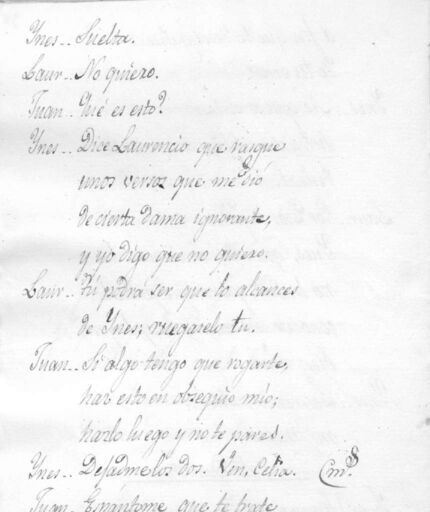 Ynes.. Suelta.
Laur.. No quiero.
Juan.. Qué es esto?
Ynes.. Dice Laurencio que rasgue
unos versos que me dió
de cierta dama ignorante,
y yo digo que no quiero.
Laur.. tú podrá ser que lo alcances
de Ynes; ruegaselo tu.
Juan.. Si algo tengo que rogarte,
haz esto en obsequio mío;
hazlo luego y no te pares.
Ynes.. Dejadme los dos. Ven, Celia.
Juan.. que te trate